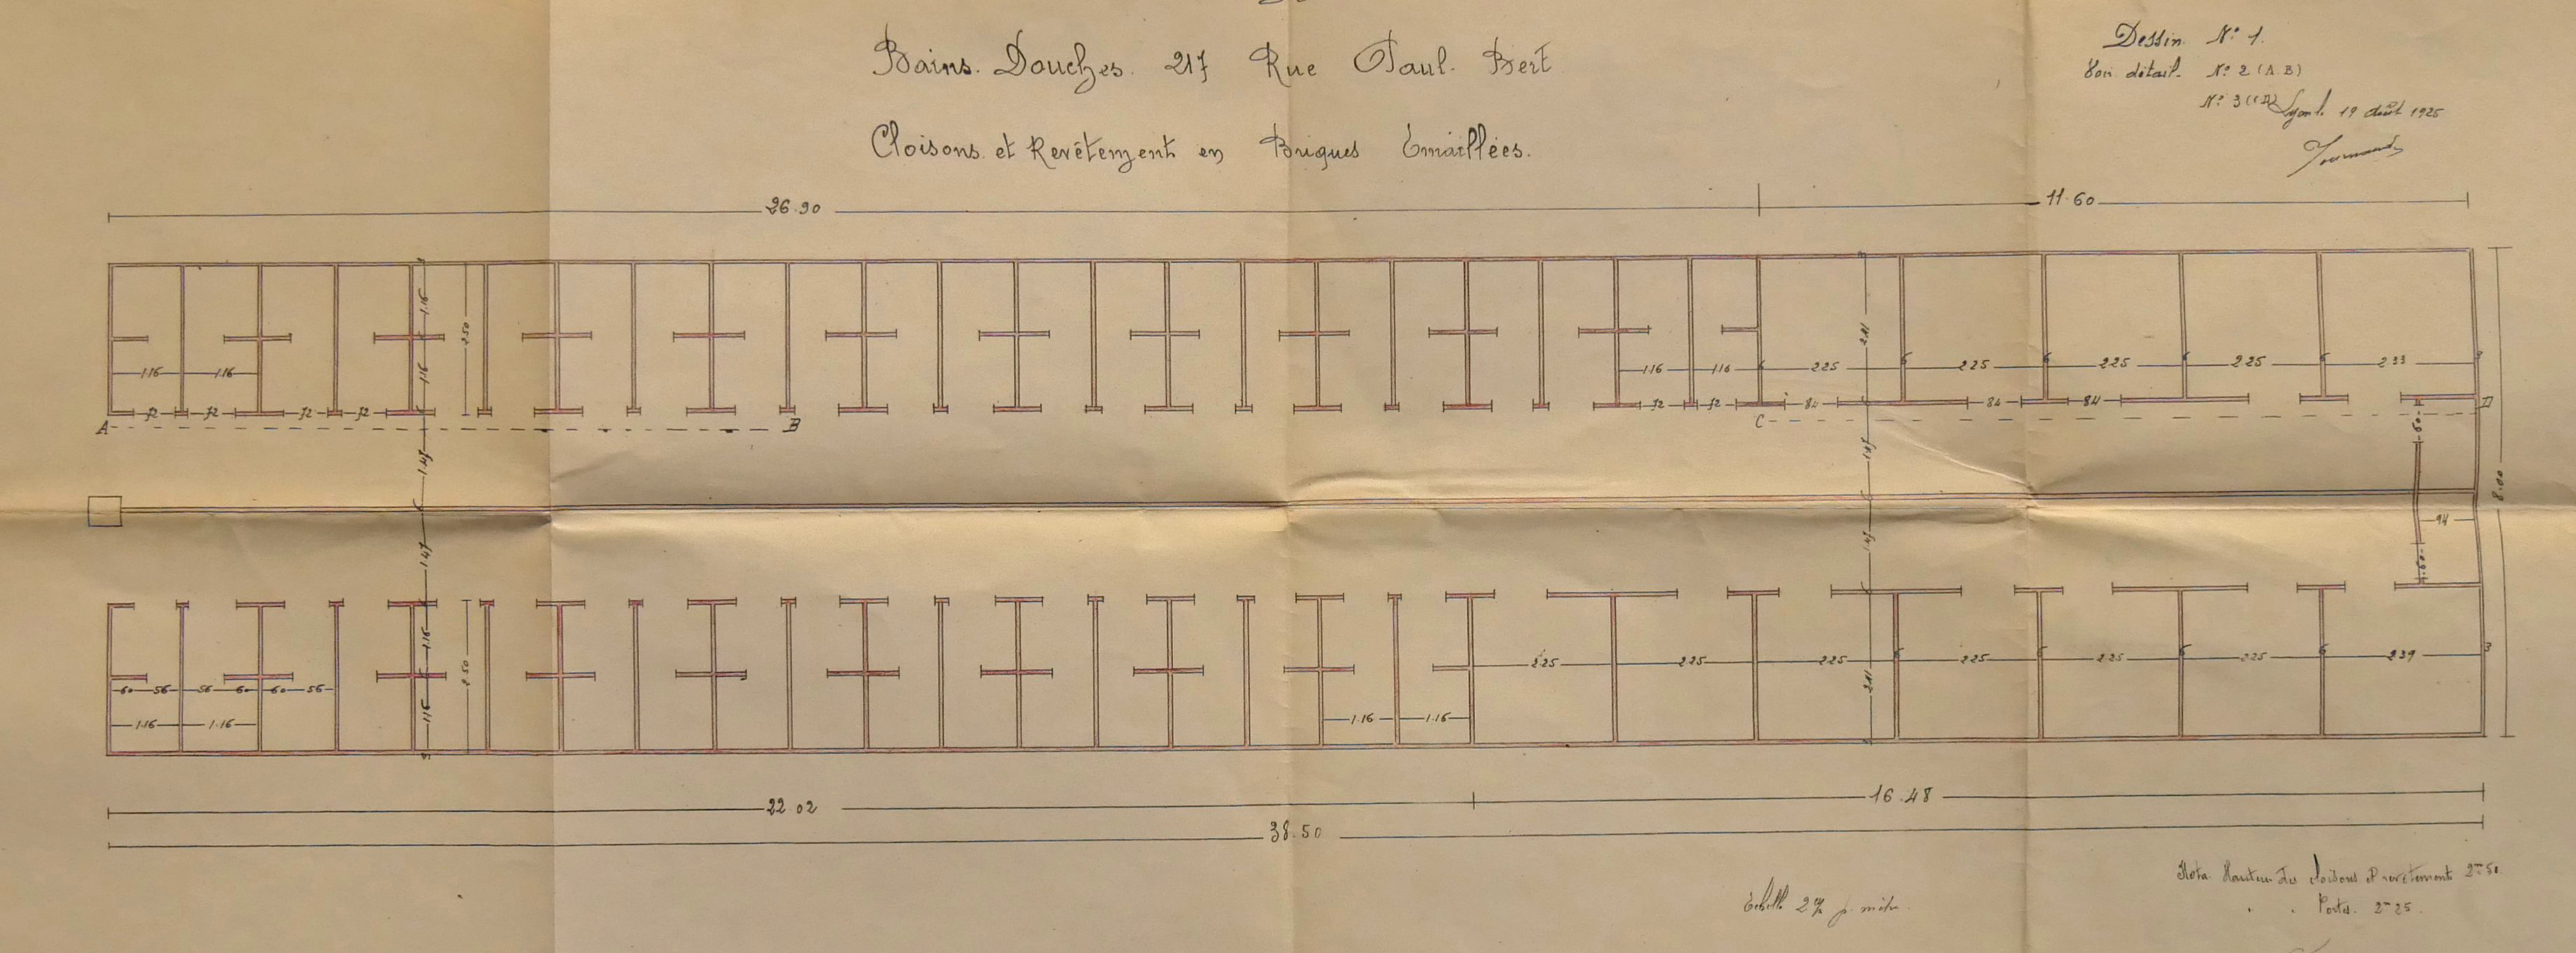 Bains. Douches. 217 Rue Paul. Bert
Cloisons. et Revêtement en Briques Emaillées.
Dessin. N° 1.
Voir détail. N° 2 (A.B)
N° 3 (C.D)
Lyon le 19 août 1925
26.90
11.60
1.16
1.16
2.50
1.16
1.16
1.16 1.16
1.16 1.16
2.25 2.25 2.25 2.25 2.33
6 6 6 6 6 3
2.41
72 72 72 72
72 72
84 84 84
A B
C D
60
1.47
1.47
8.00
94
1.47
1.47
60
1.16
2.50
1.16
60 56 56 60 60 56
1.16 1.16
1.16 1.16
2.25 2.25 2.25 2.25 2.25 2.25 2.39
3
2.41
22.02
16.48
38.50
Echelle 2 c/m p. mètre.
Nota. Hauteur des cloisons et revêtements 2m50.
" " Portes. 2m25.